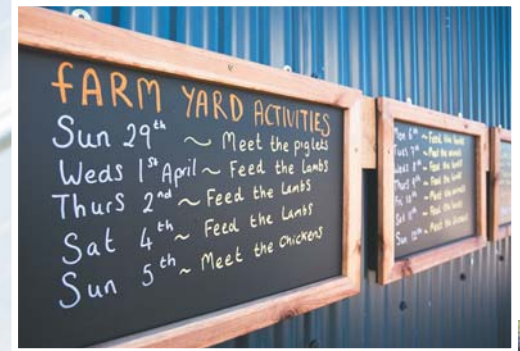 fARM YARD ACTIVITIES
Sun 29th ~ Meet the piglets
Weds 1st April ~ Feed the Lambs
Thurs 2nd ~ Feed the Lambs
Sat 4th ~ Feed the Lambs
Sun 5th ~ Meet the chickens
Mon 6th ~ Feed the lambs
Tues 7th ~ Meet the animals
Weds 8th ~ Feed the lambs
Thurs 9th ~ Feed the lambs
Fri 10th ~ Meet the animals
Sat 11th ~ Feed the lambs
Sun 12th ~ Meet the chickens